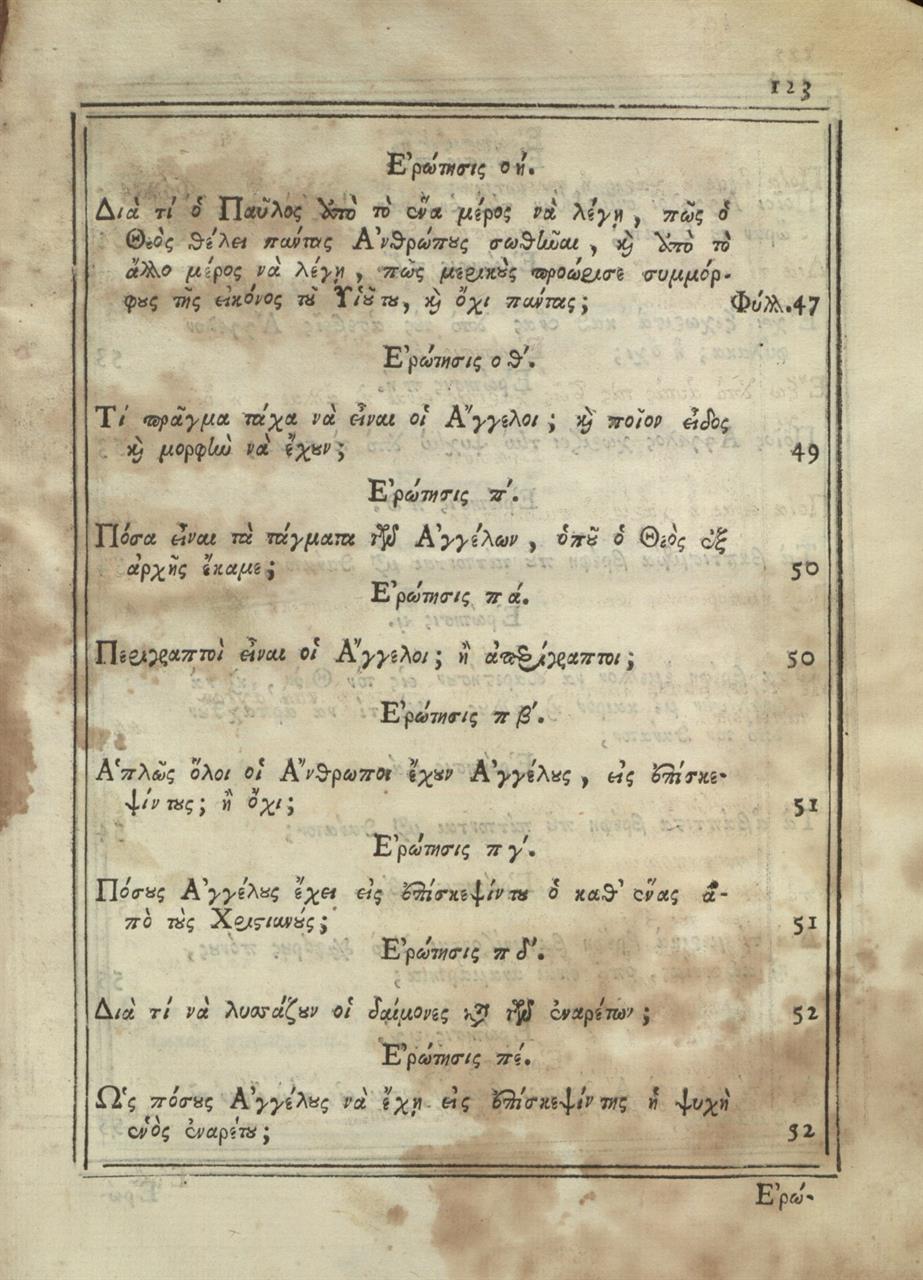 123
Ἐρώτησις οή.
Διὰ τί ὁ Παῦλος ἀπὸ τὸ ἕνα μέρος νὰ λέγῃ, πῶς ὁ
Θεὸς θέλει παύτας Ἀνθρώπους σωθῆναι, καὶ ἀπὸ τὸ
ἄλλο μέρος νὰ λέγῃ, πῶς μερικοὺς προώρισε συμμόρ-
φους τῆς εἰκόνος τοῦ Υἱοῦ του, καὶ ὄχι παύτας; Φύλλ. 47
Ἐρώτησις οθ'.
Τί πρᾶγμα τάχα νὰ εἶναι οἱ Ἄγγελοι; καὶ ποῖον εἶδος
καὶ μορφὴν νὰ ἔχουν; 49
Ἐρώτησις π'.
Πόσα εἶναι τὰ τάγματα τῶν Ἀγγέλων, ὁποῦ ὁ Θεὸς ἐξ
ἀρχῆς ἔκαμε; 50
Ἐρώτησις πά.
Περιγραπτοὶ εἶναι οἱ Ἄγγελοι; ἢ ἀπερίγραπτοι; 50
Ἐρώτησις πβ'.
Ἁπλῶς ὅλοι οἱ Ἄνθρωποι ἔχουν Ἀγγέλους, εἰς ἐπίσκε-
ψίν τους; ἢ ὄχι; 51
Ἐρώτησις πγ'.
Πόσους Ἀγγέλους ἔχει εἰς ἐπίσκεψίν του ὁ καθ' ἕνας ἀ-
πὸ τοὺς Χριστιανούς; 51
Ἐρώτησις πδ'.
Διὰ τί νὰ λυσσάζουν οἱ δαίμονες κατὰ τῶν ἐναρέτων; 52
Ἐρώτησις πέ.
Ὡς πόσους Ἀγγέλους νὰ ἔχῃ εἰς ἐπίσκεψίν της ἡ ψυχὴ
ἑνὸς ἐναρέτου; 52
Ἐρώ-